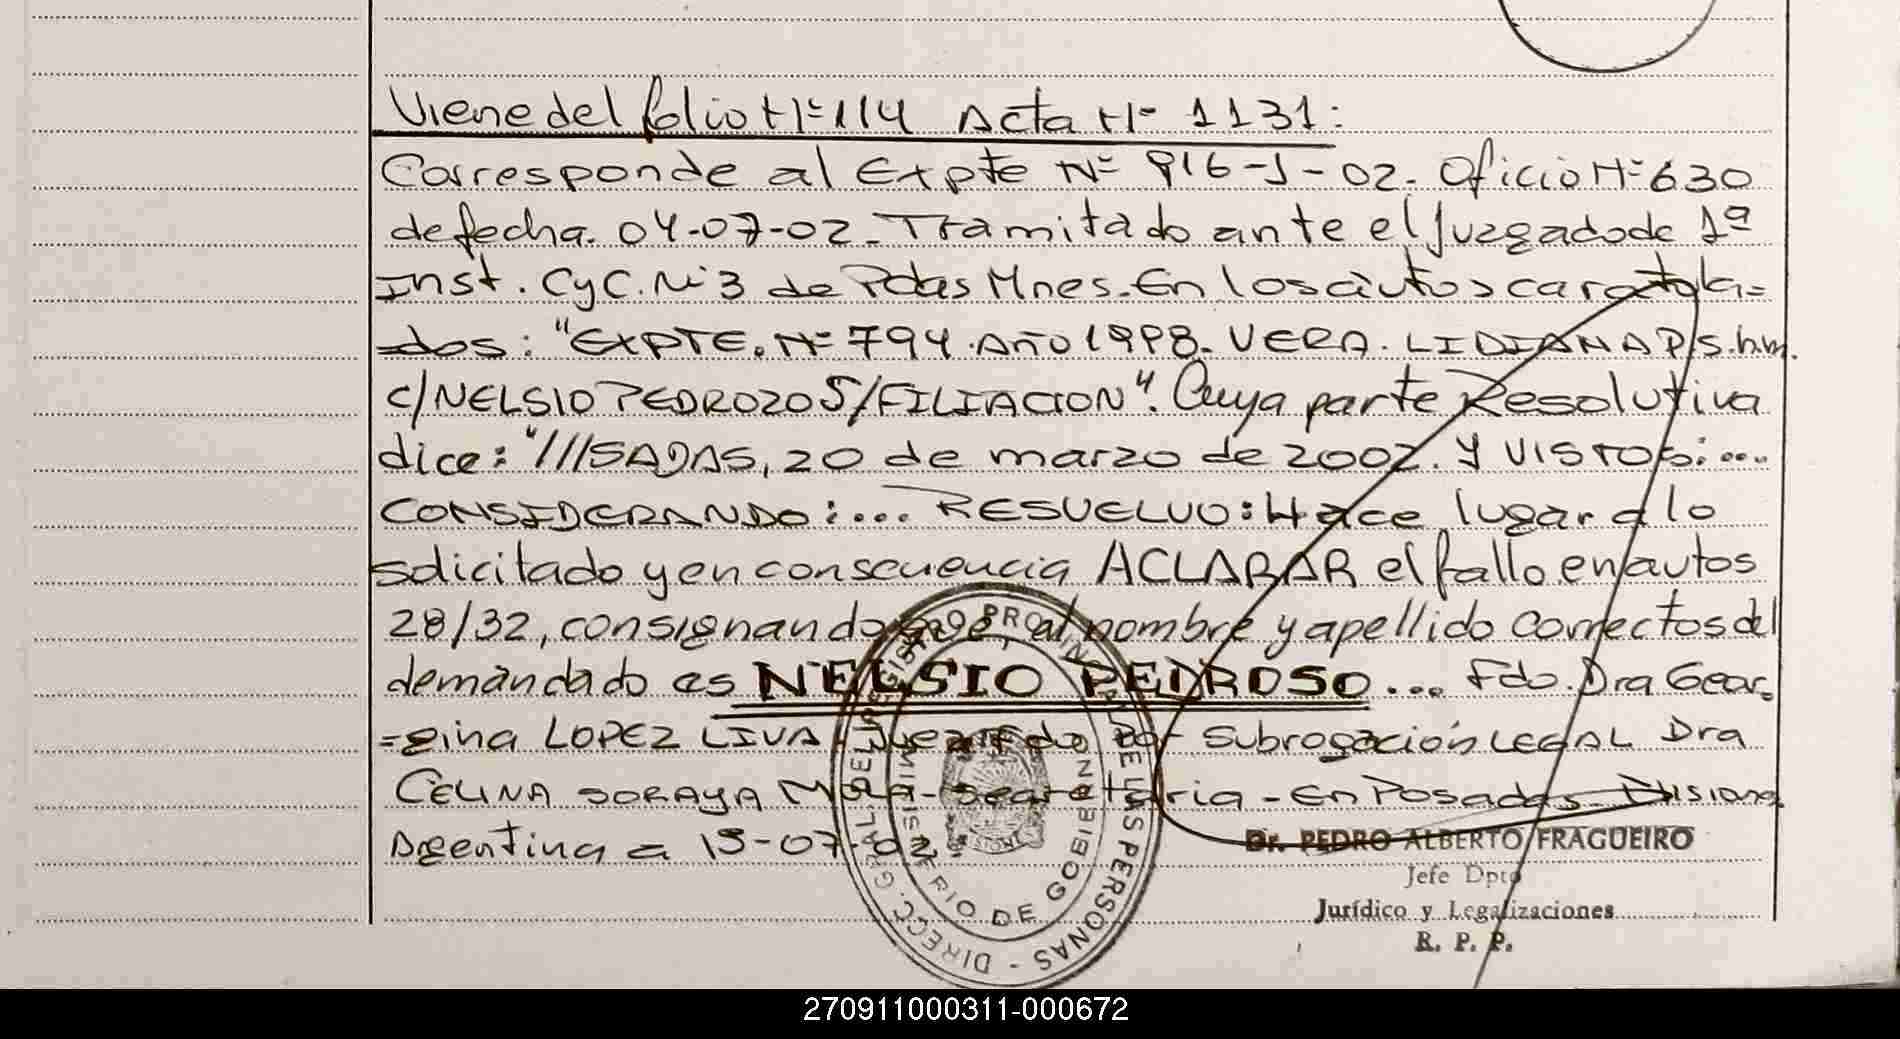 Viene del folio Nº 114 Acta Nº 1131:
Corresponde al Expte Nº 916-J-02. Oficio Nº 630
de fecha. 04-07-02. Tramitado ante el Juzgado de 1ª
Inst. CyC. Nº 3 de Pdas Mnes. En los autos caratula=
=dos: "EXPTE. Nº 794. AÑO 1998. VERA. LIDIANA P/S.h.m.
C/NELSIO PEDROZO S/FILIACION". Cuya parte Resolutiva
dice: "///SADAS, 20 de marzo de 2002. Y VISTOS:....
CONSIDERANDO:... RESUELVO: Hace lugar a lo
solicitado y en consecuencia ACLARAR el fallo en autos
28/32, consignando que al nombre y apellido correctos del
demandado es NELSIO PEDROSO... Fdo. Dra Geor=
=gina LOPEZ LIVA. Juez. Fdo por Subrogación LEGAL Dra
CELINA SORAYA Secretaria - En Posadas Misiones
Argentina a 15-07-02.
Dr. PEDRO ALBERTO FRAGUEIRO
Jefe Dpto
Jurídico y Legalizaciones
R. P. P.
DIRECC. GRAL. DEL REGISTRO PROVINCIAL DE LAS PERSONAS -
MINISTERIO DE GOBIERNO
270911000311-000672